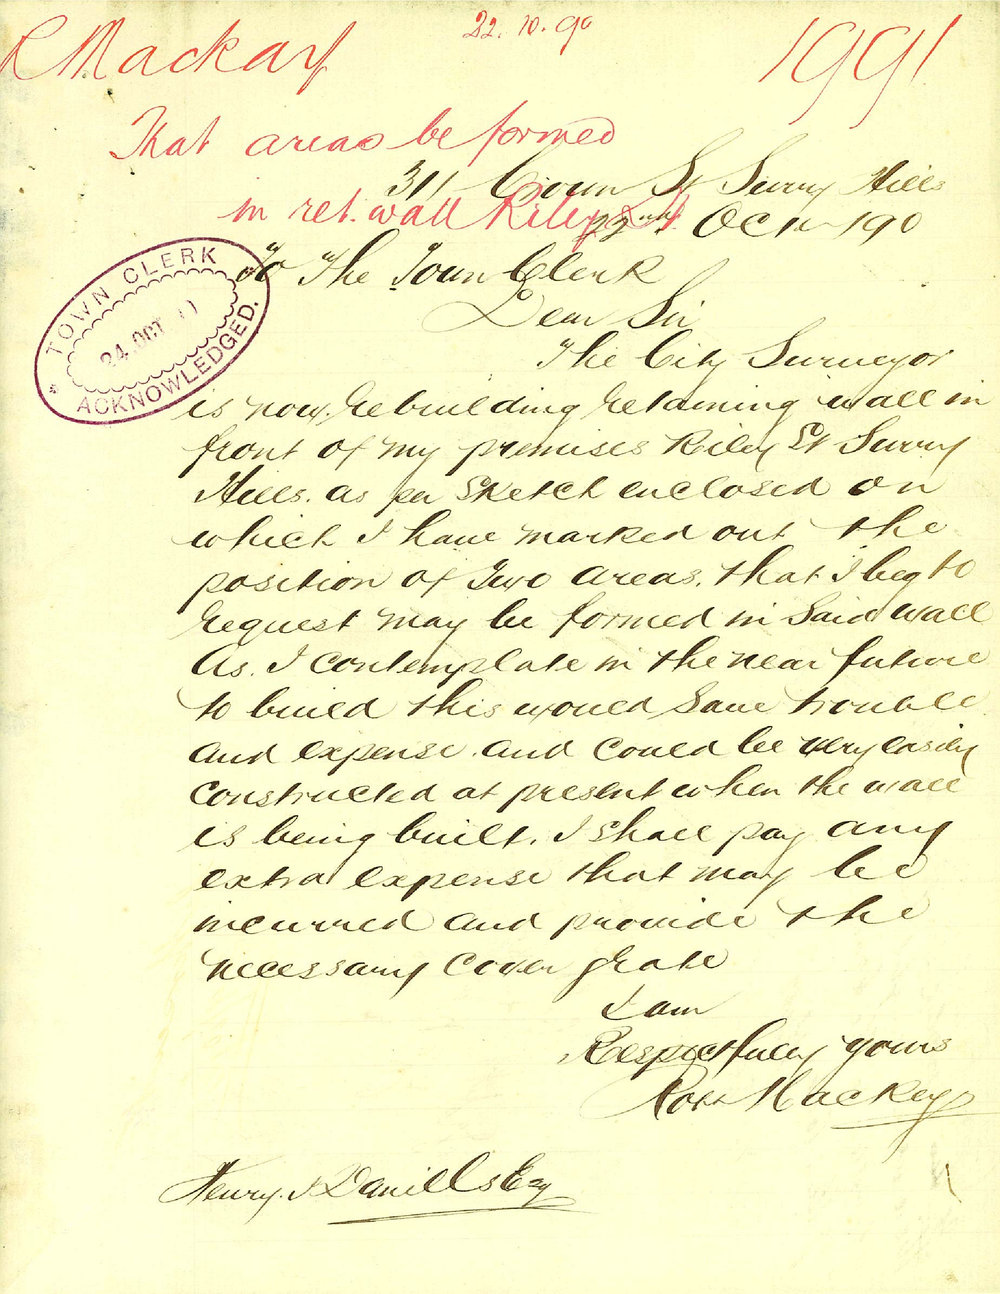 22.10.90
R Mackay 1991
That areas be formed
in ret. wall Riley St
311 Crown St Surry Hills
22nd Oct 190
To The Town Clerk
TOWN CLERK
24 OCT
ACKNOWLEDGED.
Dear Sir
The City Surveyor
is now rebuilding retaining wall in
front of my premises Riley St Surry
Hills. as per Sketch enclosed on
which I have marked out the
position of Two areas. that I beg to
request may be formed in Said wall
As. I contemplate in the near future
to build this would Save trouble
and expense and could be very easily
constructed at present when the wall
is being built. I shall pay any
extra expense that may be
incurred and provide the
necessary cover grate
I am
Respectfully yours
Robt Mackey
Henry. J Daniells Esq